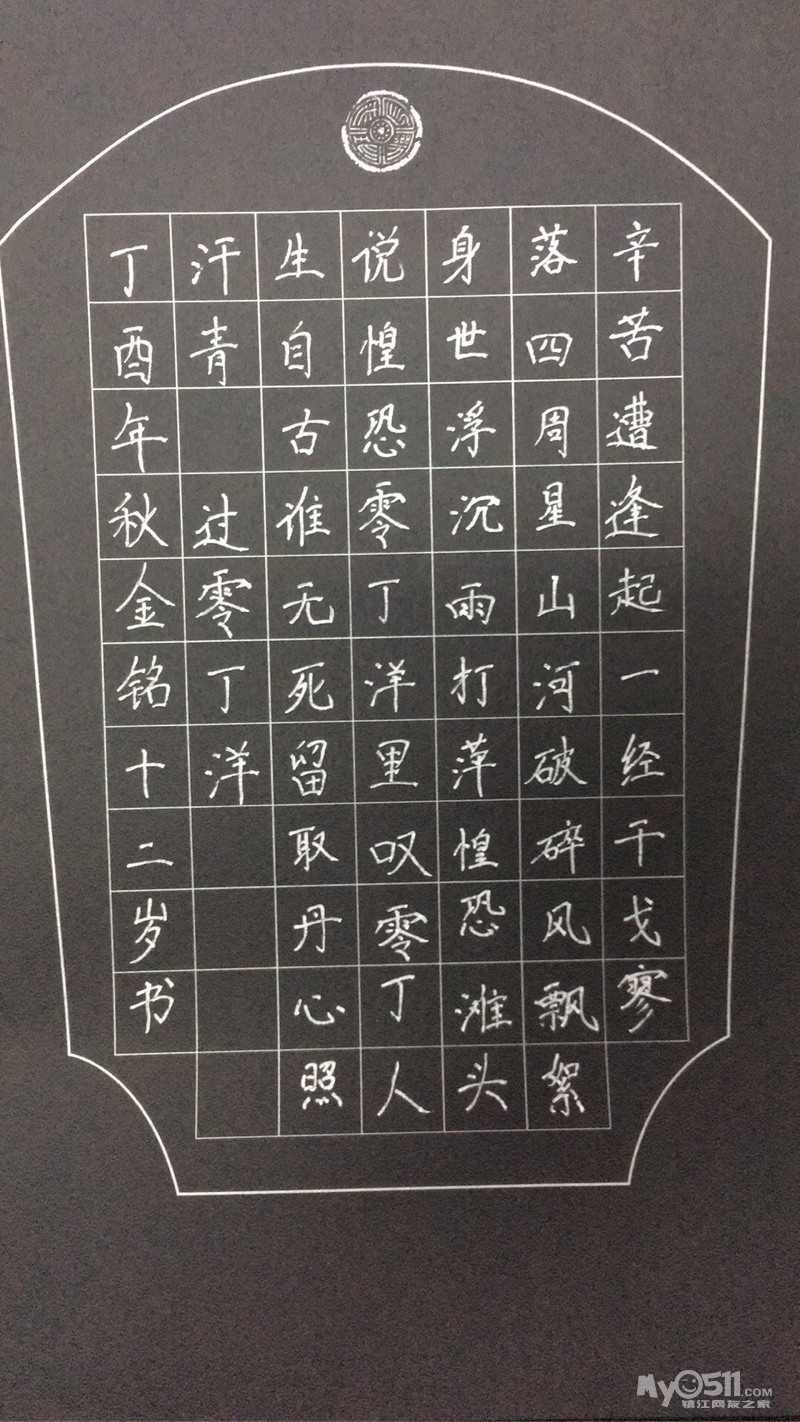 辛苦遭逢起一经干戈寥
落四周星山河破碎风飘絮
身世浮沉雨打萍惶恐滩头
说惶恐零丁洋里叹零丁人
生自古谁无死留取丹心照
汗青 过零丁洋
丁酉年秋金铭十二岁书
My0511.COM
镇江网友之家